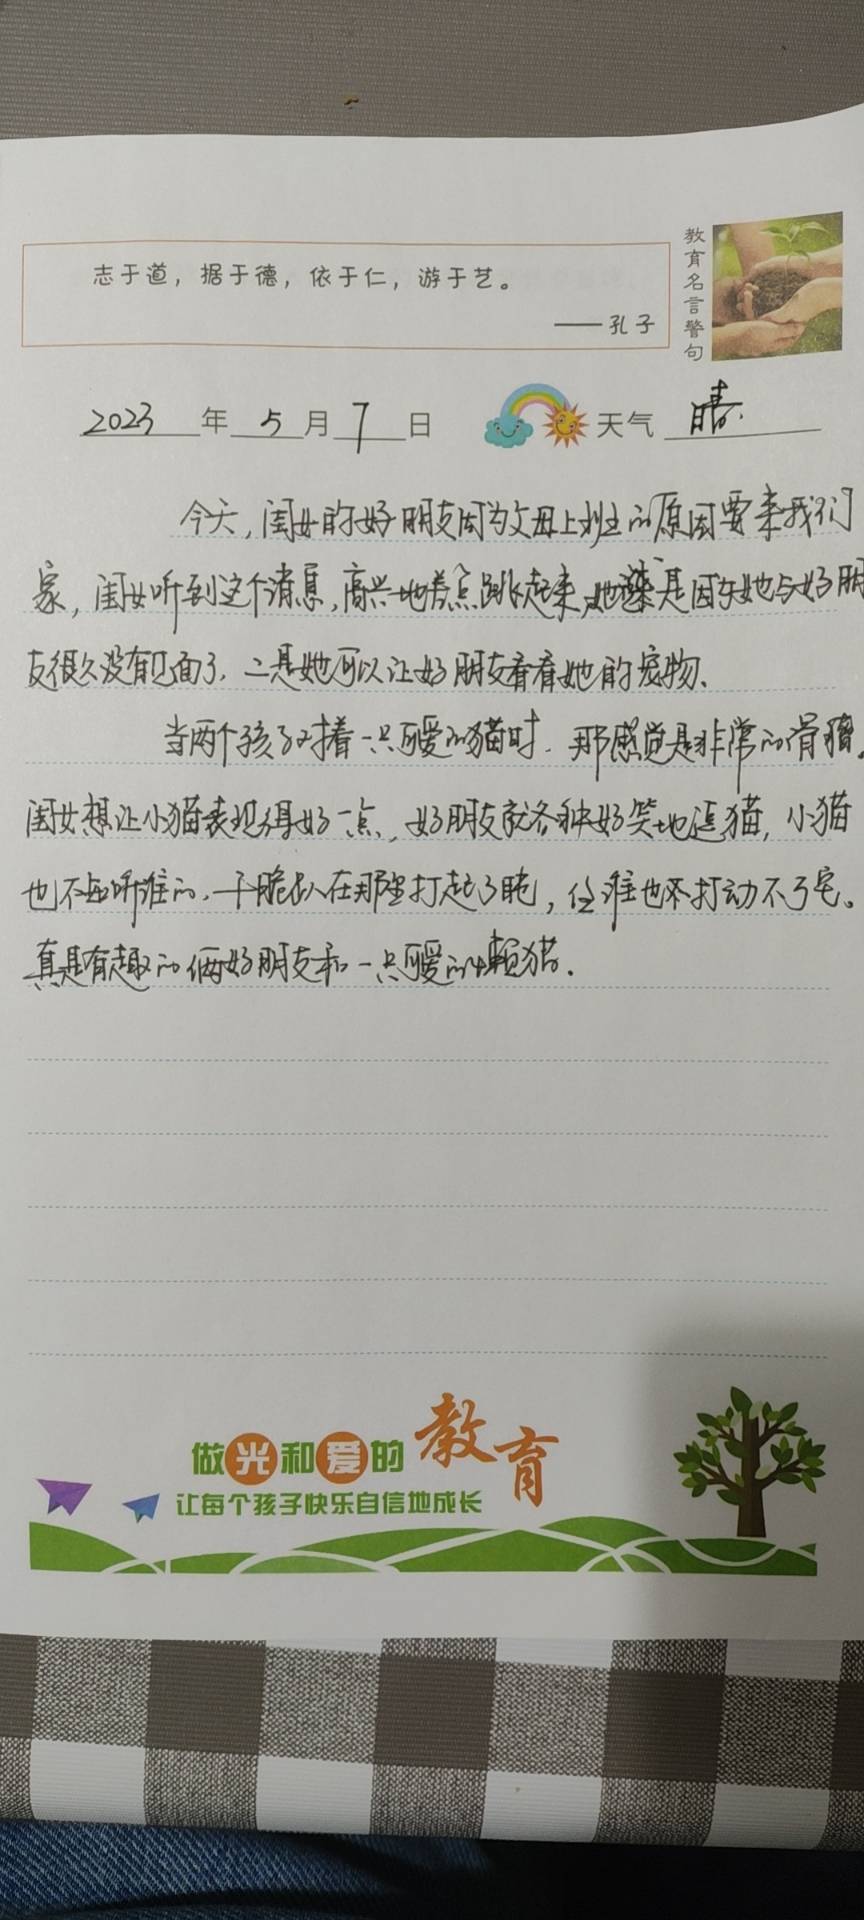 志于道，据于德，依于仁，游于艺。
——孔子
教育名言警句
2023年5月7日 天气 晴.
今天，闺女的好朋友因为父母上班的原因要来我们
家，闺女听到这个消息，高兴地差点跳起来，她是因为她与好朋
友很久没有见面了，二是她可以让好朋友看看她的宠物.
当两个孩子对着一只可爱的猫时，那感觉是非常的滑稽。
闺女想让小猫表现得好一点，好朋友就各种好笑地逗猫，小猫
也不是听谁的，干脆趴在那里打起了盹，任谁也不打动不了它。
真是有趣的俩好朋友和一只可爱的小懒猫.
做光和爱的教育
让每个孩子快乐自信地成长